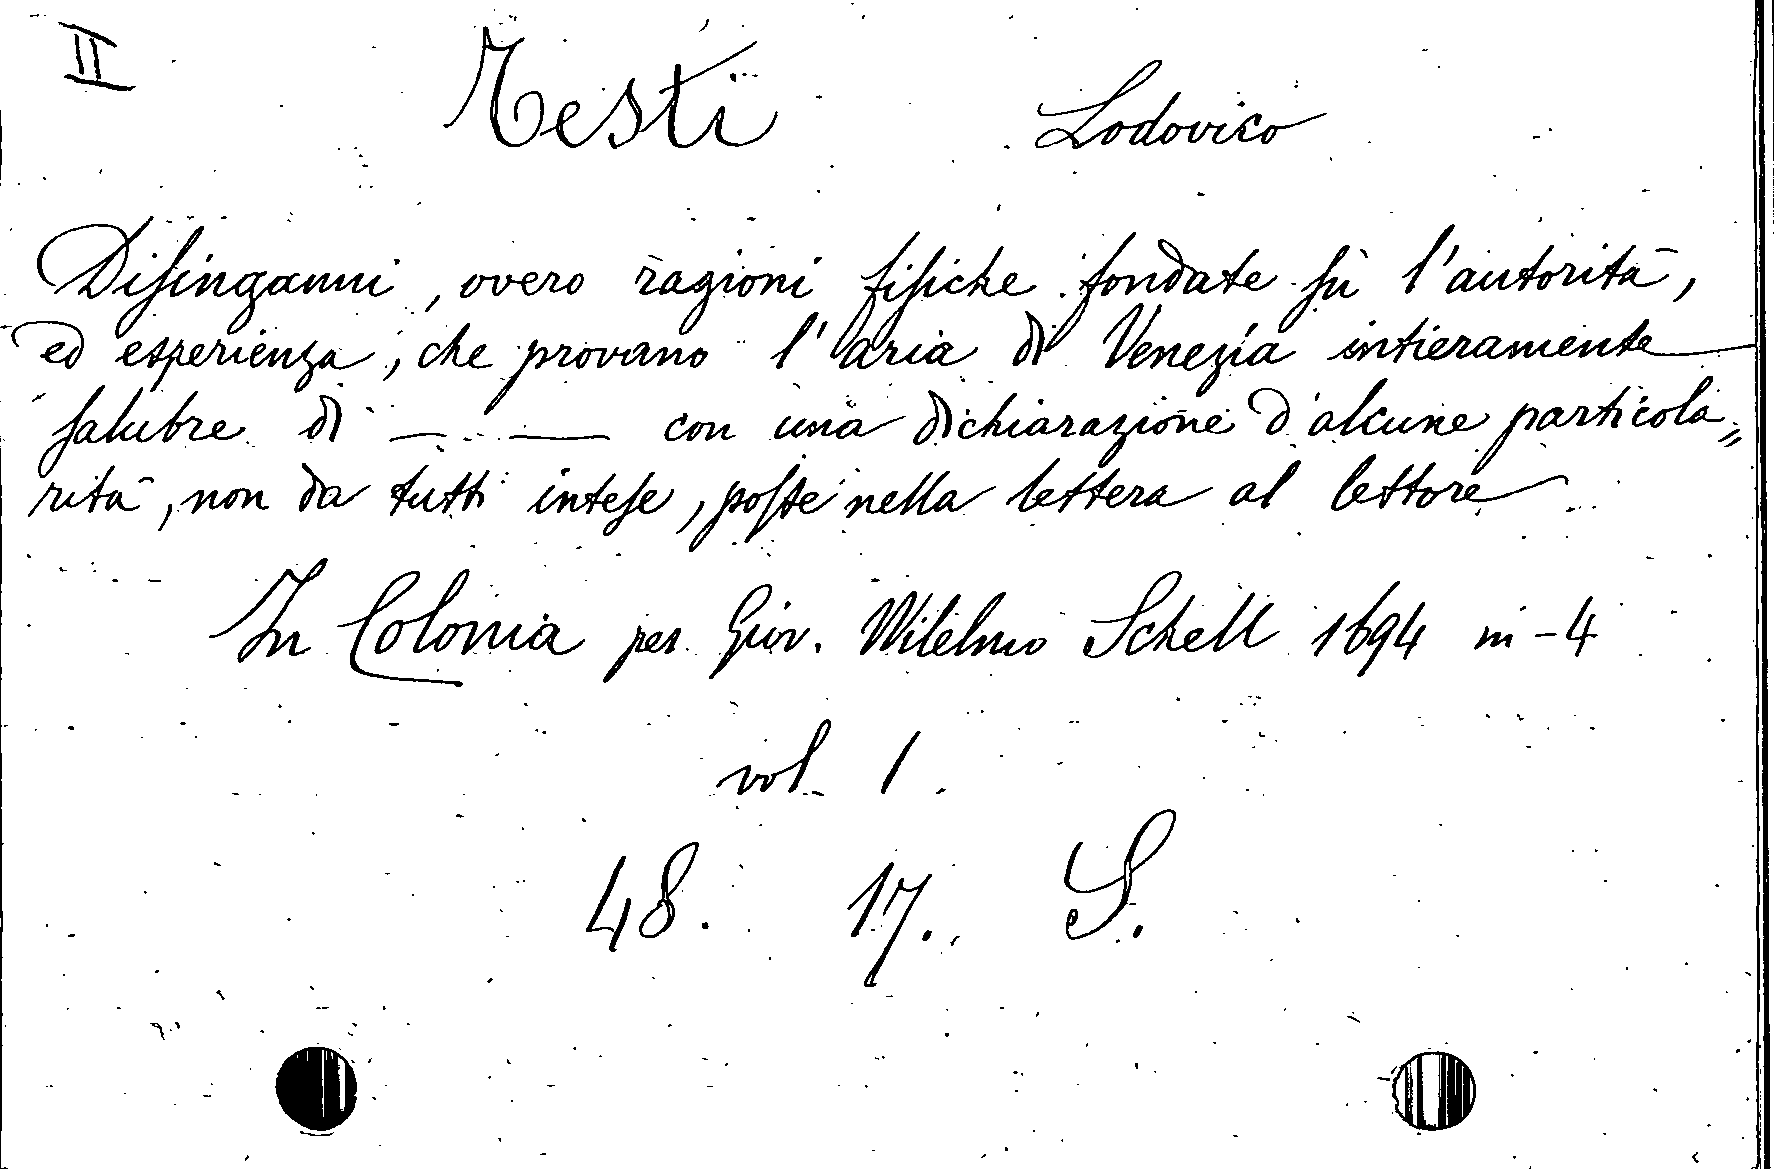 II
Testi Lodovico
Disinganni, overo ragioni fisiche fondate sù l'autorità,
ed esperienza, che provano l'aria di Venezia intieramente
salubre di — — con una dichiarazione d'alcune particola„
rità, non da tutti intese, poste nella lettera al lettore
In Colonia per Giov. Wilelmo Schell 1694 in-4
vol. 1.
48. 17. S.